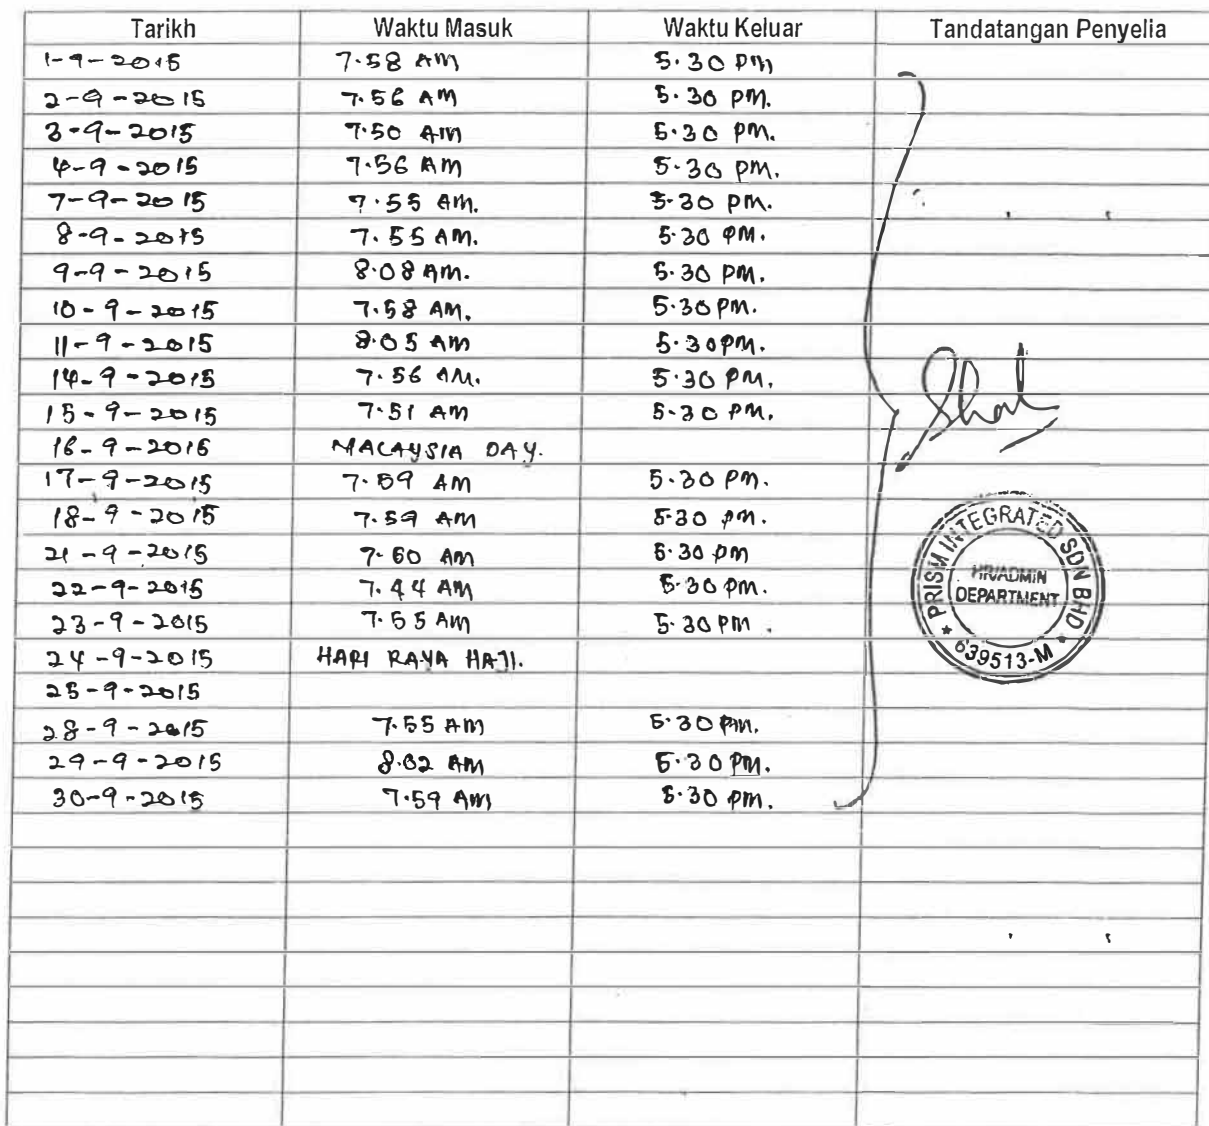 Tarikh Waktu Masuk Waktu Keluar Tandatangan Penyelia
1-9-2015 7.58 AM 5.30 PM
2-9-2015 7.56 AM 5.30 PM.
3-9-2015 7.50 AM 5.30 PM.
4-9-2015 7.56 AM 5.30 PM.
7-9-2015 7.55 AM. 5.30 PM.
8-9-2015 7.55 AM. 5.30 PM.
9-9-2015 8.08 AM. 5.30 PM.
10-9-2015 7.58 AM. 5.30 PM.
11-9-2015 8.05 AM 5.30 PM.
14-9-2015 7.56 AM. 5.30 PM.
15-9-2015 7.51 AM 5.30 PM.
16-9-2015 MALAYSIA DAY.
17-9-2015 7.59 AM 5.30 PM.
18-9-2015 7.59 AM 5.30 PM.
21-9-2015 7.50 AM 5.30 PM
22-9-2015 7.44 AM 5.30 PM.
23-9-2015 7.55 AM 5.30 PM.
24-9-2015 HARI RAYA HAJI.
25-9-2015
28-9-2015 7.55 AM 5.30 PM.
29-9-2015 8.02 AM 5.30 PM.
30-9-2015 7.59 AM 5.30 PM.
PRISM INTEGRATED SDN BHD
HR/ADMIN
DEPARTMENT
639513-M